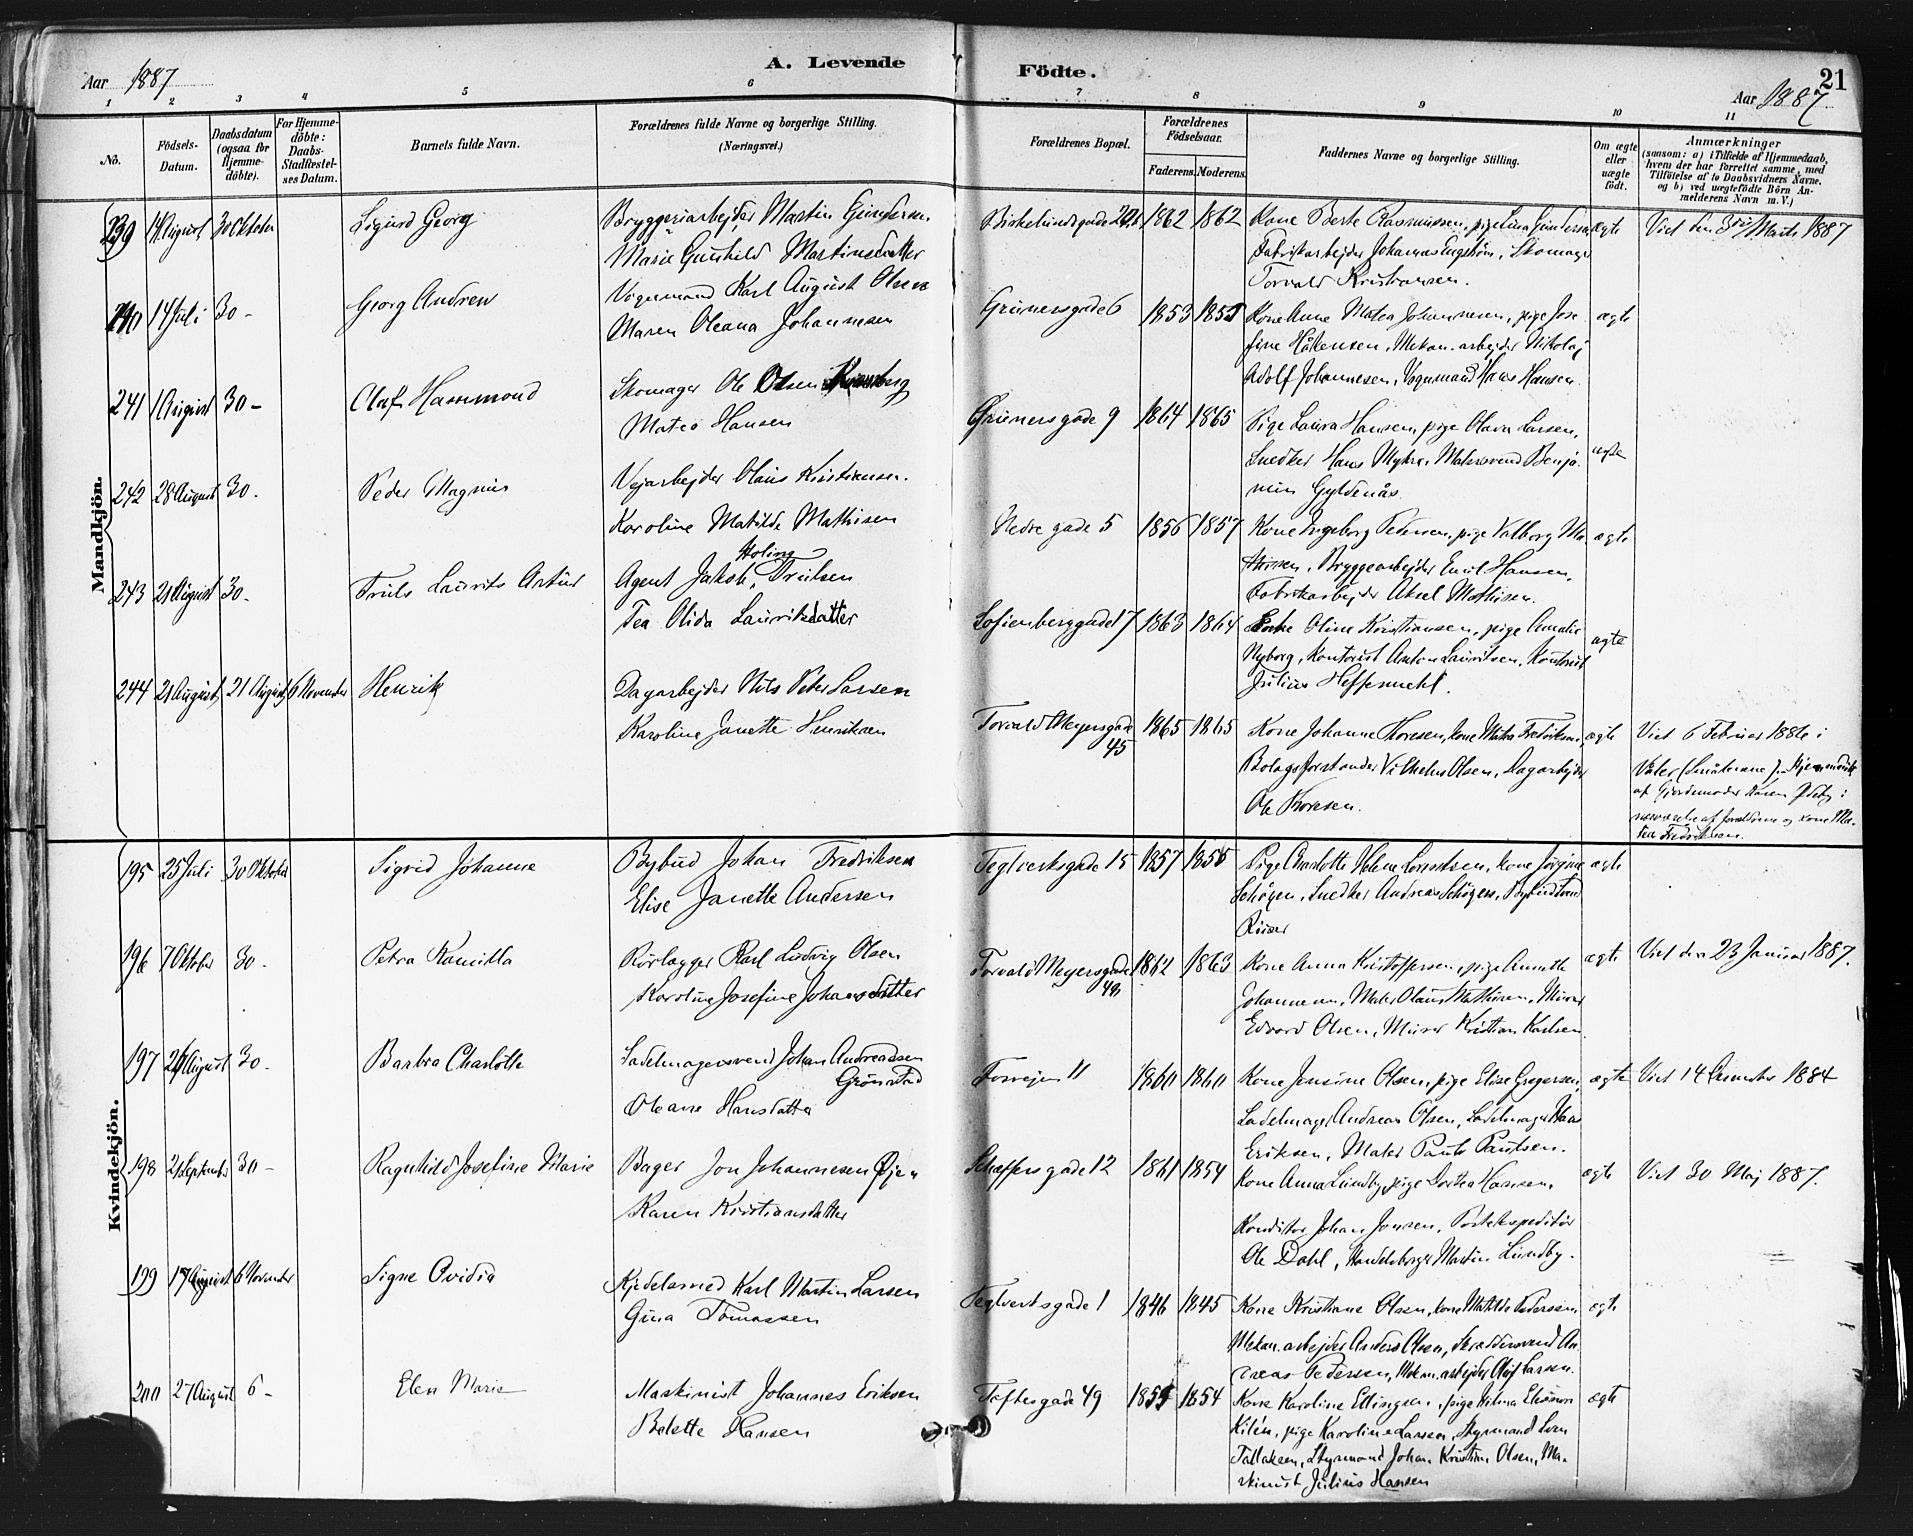 Aar 1887
A. Levende
Födte.
21
Aar 1887
1 2 3 4 5 6 7 8 9 10 11
No.
Födsels-
Datum.
Daabsdatum
(ogsaa for
Hjemme-
döbte).
For Hjemme-
döbte:
Daabs-
Stadfæstel-
ses Datum.
Barnets fulde Navn.
Forældrenes fulde Navne og borgerlige Stilling.
(Næringsvei.)
Forældrenes Bopæl.
Forældrenes
Födselsaar.
Faderens. Moderens.
Faddernes Navne og borgerlige Stilling.
Om ægte
eller
uægte
födt.
Anmærkninger
(saasom: a) i Tilfælde af Hjemmedaab,
hvem der har forrettet samme, med
Tilföielse af to Daabsvidners Navne,
og b) ved uægtefödte Börn An-
melderens Navn m. V.)
Mandkjön.
239 14 August 30 Oktober
Sigurd Georg
Bryggeriarbejder Martin Gundersen
Marie Gunhild Martinsdatter
Birkelundsgade
1862 1862
Kone Berte Rasmussen, pige Lina Gundersen
Fabrikarbejder Johannes Engström, Skomager
Torvald Kristiansen.
ægte
Viet den 3die Marts 1887
240 14 Juli 30 -
Georg Andrew
Vognmand Karl August Olsen
Maren Oleana Johannesen
Grünersgade 6
1853
Kone Anne Matea Johannesen, pige Jose
fine Håkensen, Mekan. arbejder Nikolaj
Adolf Johannesen, Vognmand Hans Hansen
ægte
241 1 August 30 -
Olaf Hammond
Skomager Ole Olsen
Matea Hansen
Grünersgade 9
1864 1865
Pige Laura Hansen, pige Olava Larsen,
Snedker Hans Myhre, Malersvend Benja
min Gyldenås.
ægte
242 28 August 30.
Peder Magnus
Vejarbejder Olaus Kristiansen.
Karoline Matilde Mathisen
Nedregade 5
1856 1857
Kone Ingeborg Pedersen, pige Valborg Ma-
thisen, Bryggearbejder Emil Hansen,
Fabrikarbejder Aksel Mathisen.
ægte
243 21 August 30-
Truls Laurits Artur
Holing
Agent Jakob Trulsen
Tea Olida Lauritsdatter
Sofienberggade 17
1863 1864
Enke Oline Kristiansen, pige Amalie
Nyborg, Kontorist Anton Lauritsen, Kontorist
Julius
ægte
244 21 August 21 August 6 November
Henrik
Dagarbejder Nils Peter Larsen
Karoline Janette Henriksen
Torvald Meyersgade
45
1865 1865
Kone Johanne Thoresen, kone Matea Fredriksen,
Bolagsforstander Vilhelm Olsen, Dagarbejder
Ole Thoresen.
ægte
Viet 6 Februar 1886 i
Våler (Smålenene) Hjemmedöbt
af Gjordemoder Karen i
nærværelse af forældrene og kone Ma-
tea Fredriksen.
Kvindekjön.
195 25 Juli 30 Oktober
Sigrid Johanne
Bybud Johan Fredriksen
Elise Janette Andersen
Teglverksgade 15
1857 1855
Pige Charlotte Helene Lorentsen, kone Jörgine
Schögen, Snedker Andreas Schögen, Bybud
ægte
196 7 Oktober 30 -
Petra Kamilla
Rörlægger Karl Ludvig Olsen
Karoline Josefine Johansdatter
Torvald Meyersgade
48
1862 1863
Kone Anna Kristoffersen, pige Annette
Johannesen, Maler Olaus Mathisen, Murer
Edvard Olsen, Murer Kristian Karlsen
ægte
Viet den 23 Januar 1887.
197 24 August 30.
Barbra Charlotte
Sadelmagersvend Johan Andreassen
Grönstad
Oleane Hansdatter
Fossvejen 11
1860 1860
Kone Jensine Olsen, pige Elise Gregersen,
Sadelmager Andreas Olsen, Sadelmager Hans
Eriksen, Maler Paul Paulsen.
ægte
Viet 14 December 1884
198 21 September 30 -
Ragnhild Josefine Marie
Bager Jon Johannesen Öjen
Karen Kristiansdatter
Schæffersgade 12
1861 1854
Kone Anna Lundby, pige Dortea Hansen,
Konditor Johan Jonsen, Postekspeditör
Ole Dahl, Handelsborger Martin Lundby.
ægte
Viet 30 Maj 1887.
199 17 August 6 November
Signe Ovidia
Kjedelsmed Karl Martin Larsen
Gina Tomassen
Teglverksgade 1
1846 1845
Kone Kristiane Olsen, kone Matilde Pedersen,
Mekan. arbejder Anders Olsen, Skræddersvend An-
dreas Pedersen, Mekan. arbejder Larsen.
ægte
200 27 August 6 -
Elen Marie
Maskinist Johannes Eriksen
Belette Hansen
Toftesgade 49
1854
Kone Karoline Ellingsen, pige Hilma Eleonora
Kilén, pige Karoline Larsen, Styrmand Sven
Tallaksen, Styrmand Johan Kristian Olsen, Ma-
skinist Julius Hansen
ægte